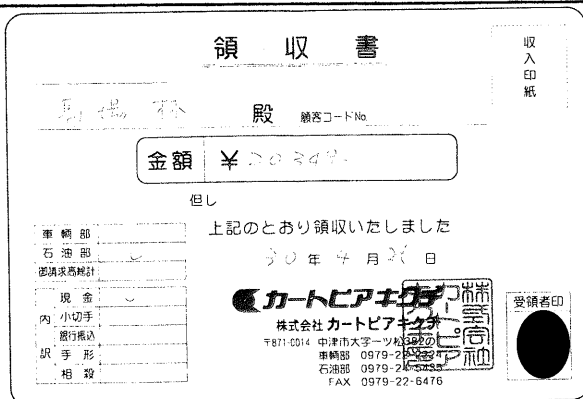 領収書
収入印紙
馬場 殿 顧客コードNo.
金額 ¥20348-
但し
上記のとおり領収いたしました
30年4月26日
車輌部
石油部
御請求高総計
内訳
現金
小切手
銀行振込
手形
相殺
カートピアキクチ
株式会社 カートピアキクチ
〒871-0014 中津市大字一ツ松382の
車輌部 0979-2
石油部 0979-2
FAX 0979-22-6476
受領者印